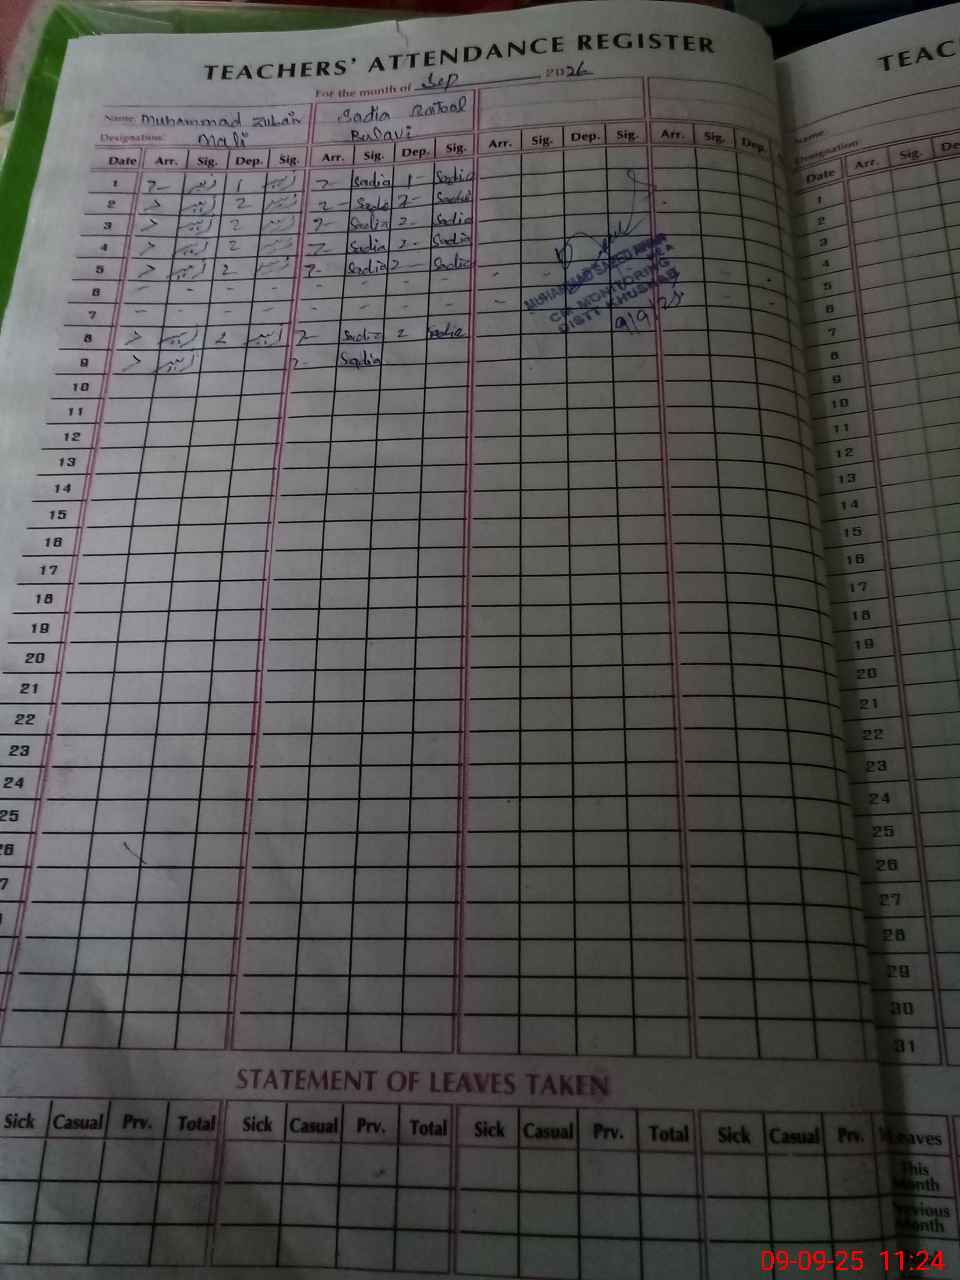 TEACHERS' ATTENDANCE REGISTER
For the month of Sep 2026
Name Muhammad Zubair Sadia Batool
Designation: Mali
Date Arr. Sig. Dep. Sig. Arr. Sig. Dep. Sig. Arr. Sig. Dep. Sig. Arr. Sig. Dep.
1 7- زبیر 1 زبیر 7- Sadia 1- Sadia
2 زبیر 2 زبیر Sadia 2- Sadia
3 زبیر 2 زبیر 7- Sadia 2- Sadia
4 زبیر 2 زبیر 7- Sadia 2- Sadia
5 زبیر 2 زبیر 7- Sadia 2- Sadia
6 - - - - - -
7 - - - - - -
8 زبیر 2 زبیر 7- Sadia 2 Sadia
9 زبیر 7- Sadia
10
11
12
13
14
15
16
17
18
19
20
21
22
23
24
25
26
7
MUHAMMAD SAEED
MONITORING
DISTT KHUSHAB
9/9/25
STATEMENT OF LEAVES TAKEN
Sick Casual Prv. Total Sick Casual Prv. Total Sick Casual Prv. Total Sick Casual Prv. Leaves
This Month
Previous Month
TEAC
Name
Designation
Date Arr. Sig. De
1
2
3
4
5
6
7
8
9
10
11
12
13
14
15
16
17
18
19
20
21
22
23
24
25
26
27
28
29
30
31
09-09-25 11:24